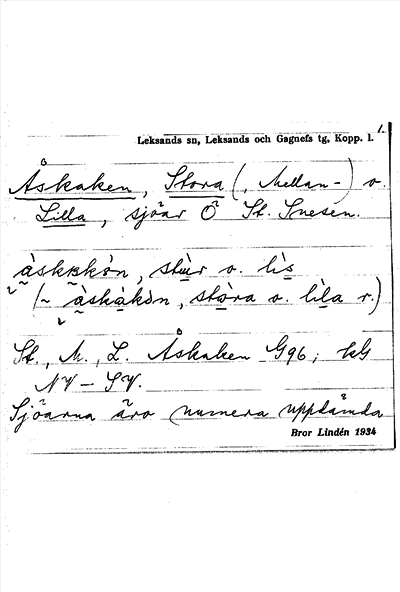 1.
Leksands sn, Leksands och Gagnefs tg, Kopp. l.
Åskaken, Stora (, Mellan-) o.
Lilla, sjöar Ö St. Snesen.
o. lìs
(~ àskàkòn, stòra o. lìla r.)
St., M., L. Åskaken G96; kG
NV – SV.
Sjöarna äro numera uppdämda
Bror Lindén 1934